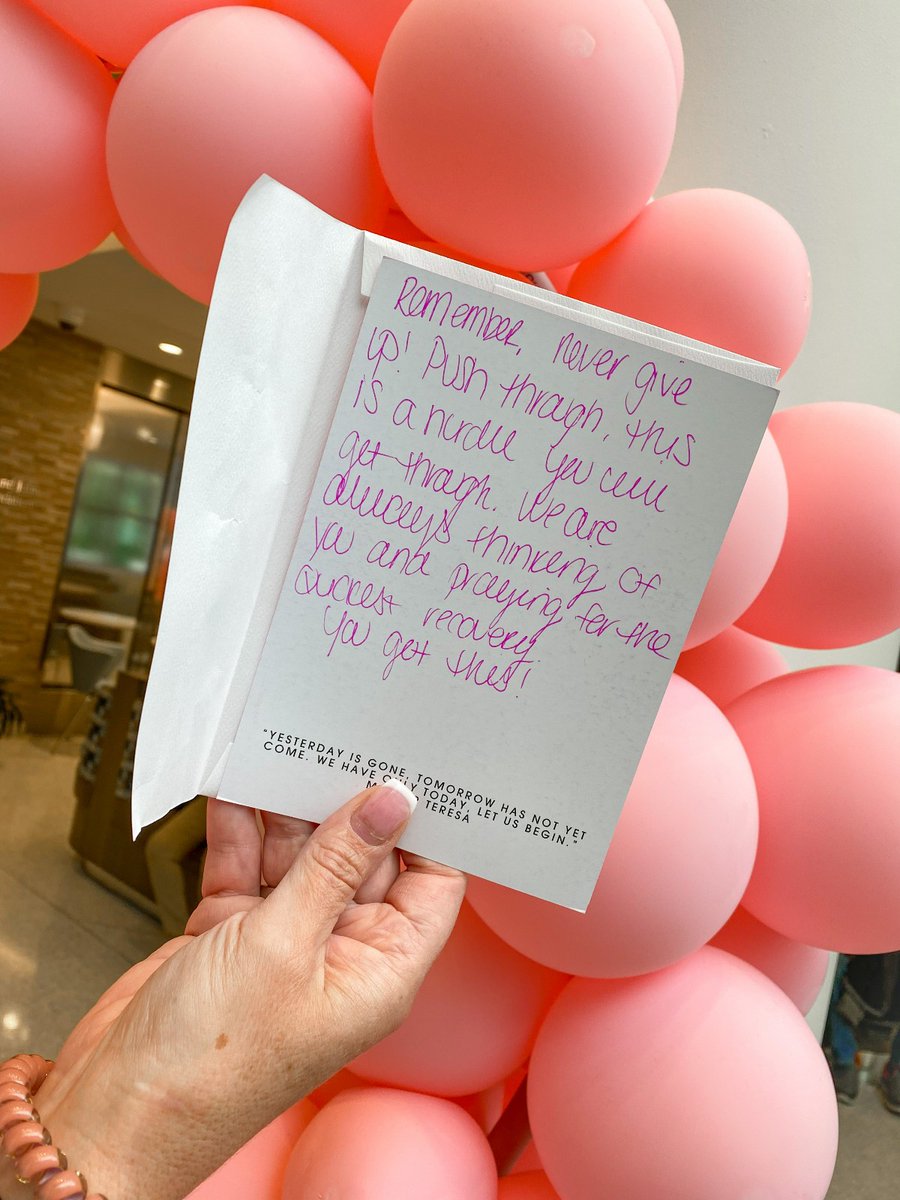 Remember, never give
up! Push through, this
is a hurdle you will
get through. We are
always thinking of
you and praying for the
quickest recovery
You get this!
"YESTERDAY IS GONE, TOMORROW HAS NOT YET
COME. WE HAVE ONLY TODAY, LET US BEGIN."
TERESA